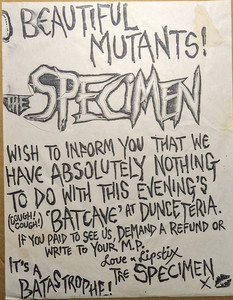 O BEAUTIFUL
MUTANTS!
THE SPECIMEN
WISH TO INFORM YOU THAT WE
HAVE ABSOLUTELY NOTHING
TO DO WITH THIS EVENING'S
(COUGH! COUGH!) 'BATCAVE' AT DUNCETERIA.
IF YOU PAID TO SEE US, DEMAND A REFUND OR
WRITE TO YOUR M.P.
Love n Lipstix
IT'S A THE SPECIMEN
BATASTROPHE! X